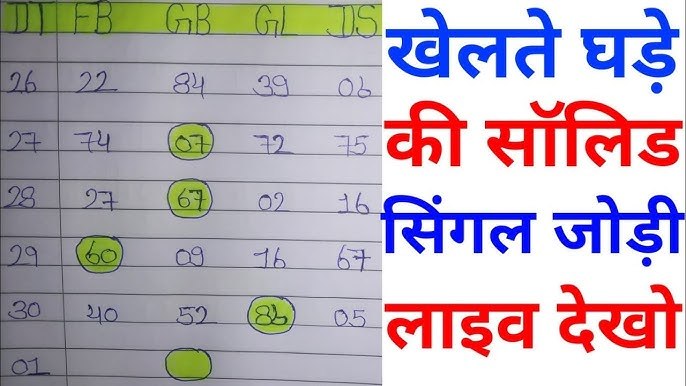 DT FB GB GL DS
26 22 84 39 06
27 74 07 72 75
28 27 67 02 16
29 60 09 16 67
30 40 52 86 05
01
खेलते घड़े
की सॉलिड
सिंगल जोड़ी
लाइव देखो